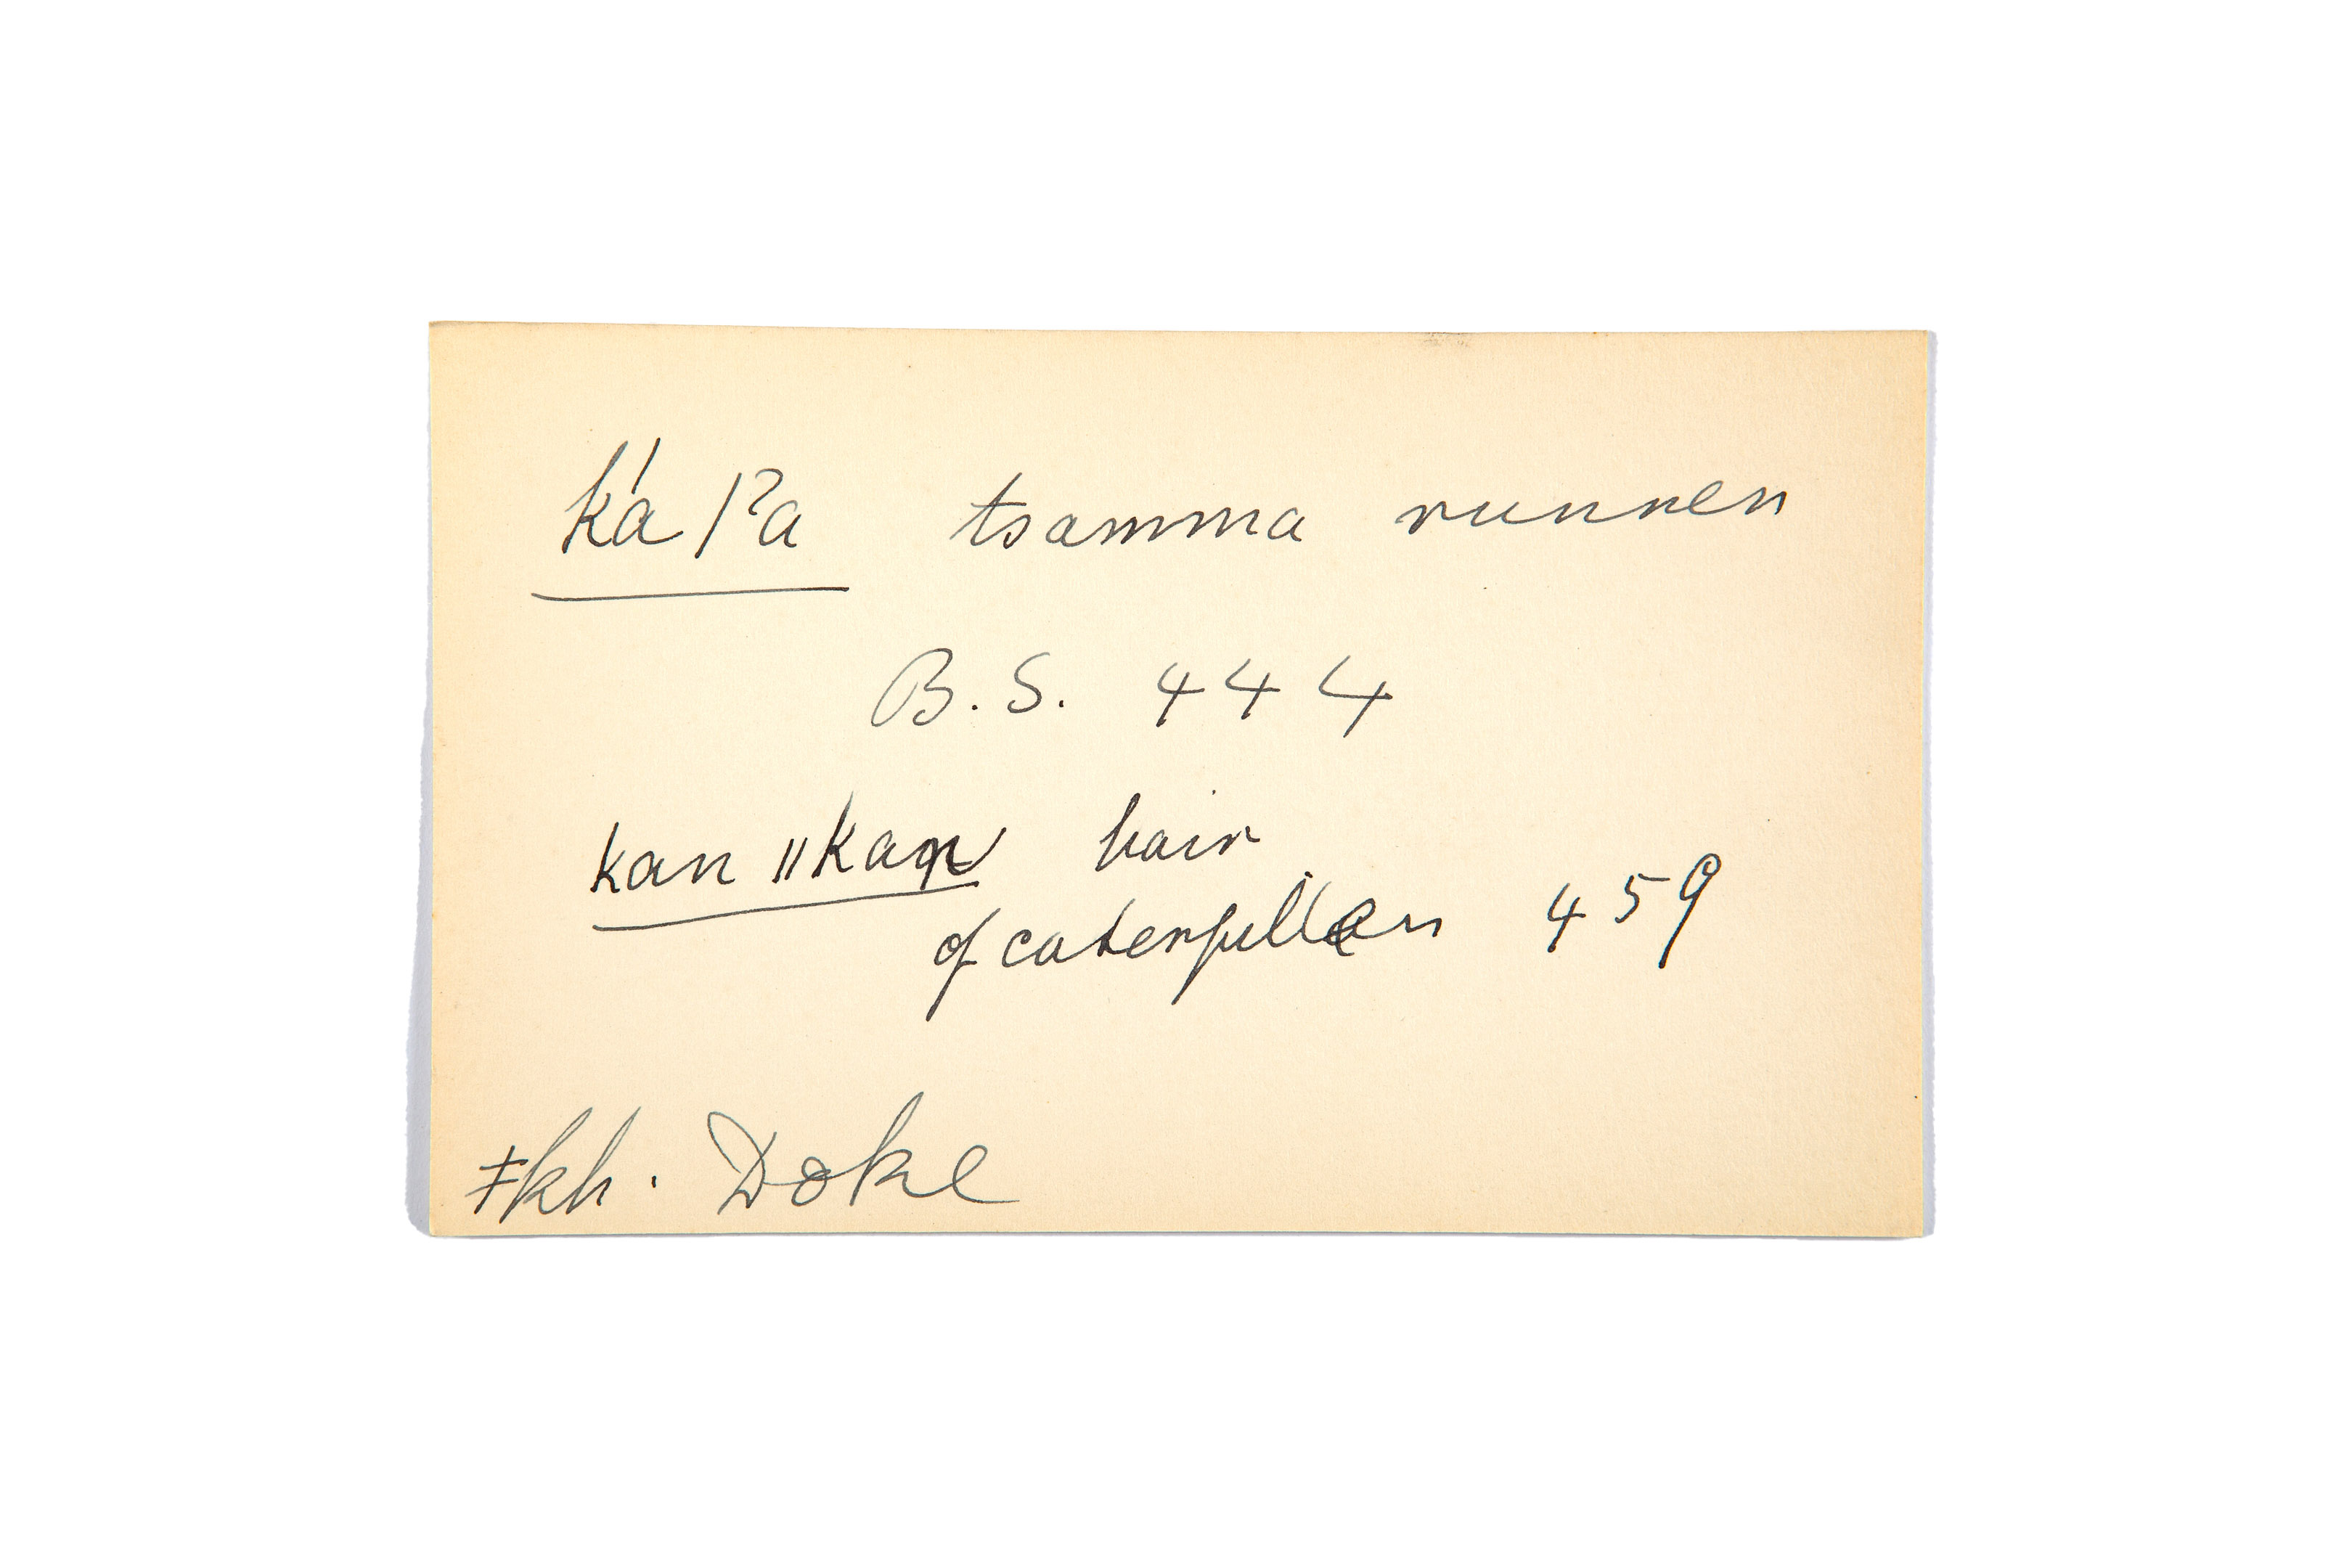 k'a/ʔa tsamma runner
B.S. 444
kan ǁkan hair
of caterpiller 459
ǂkh. Doke